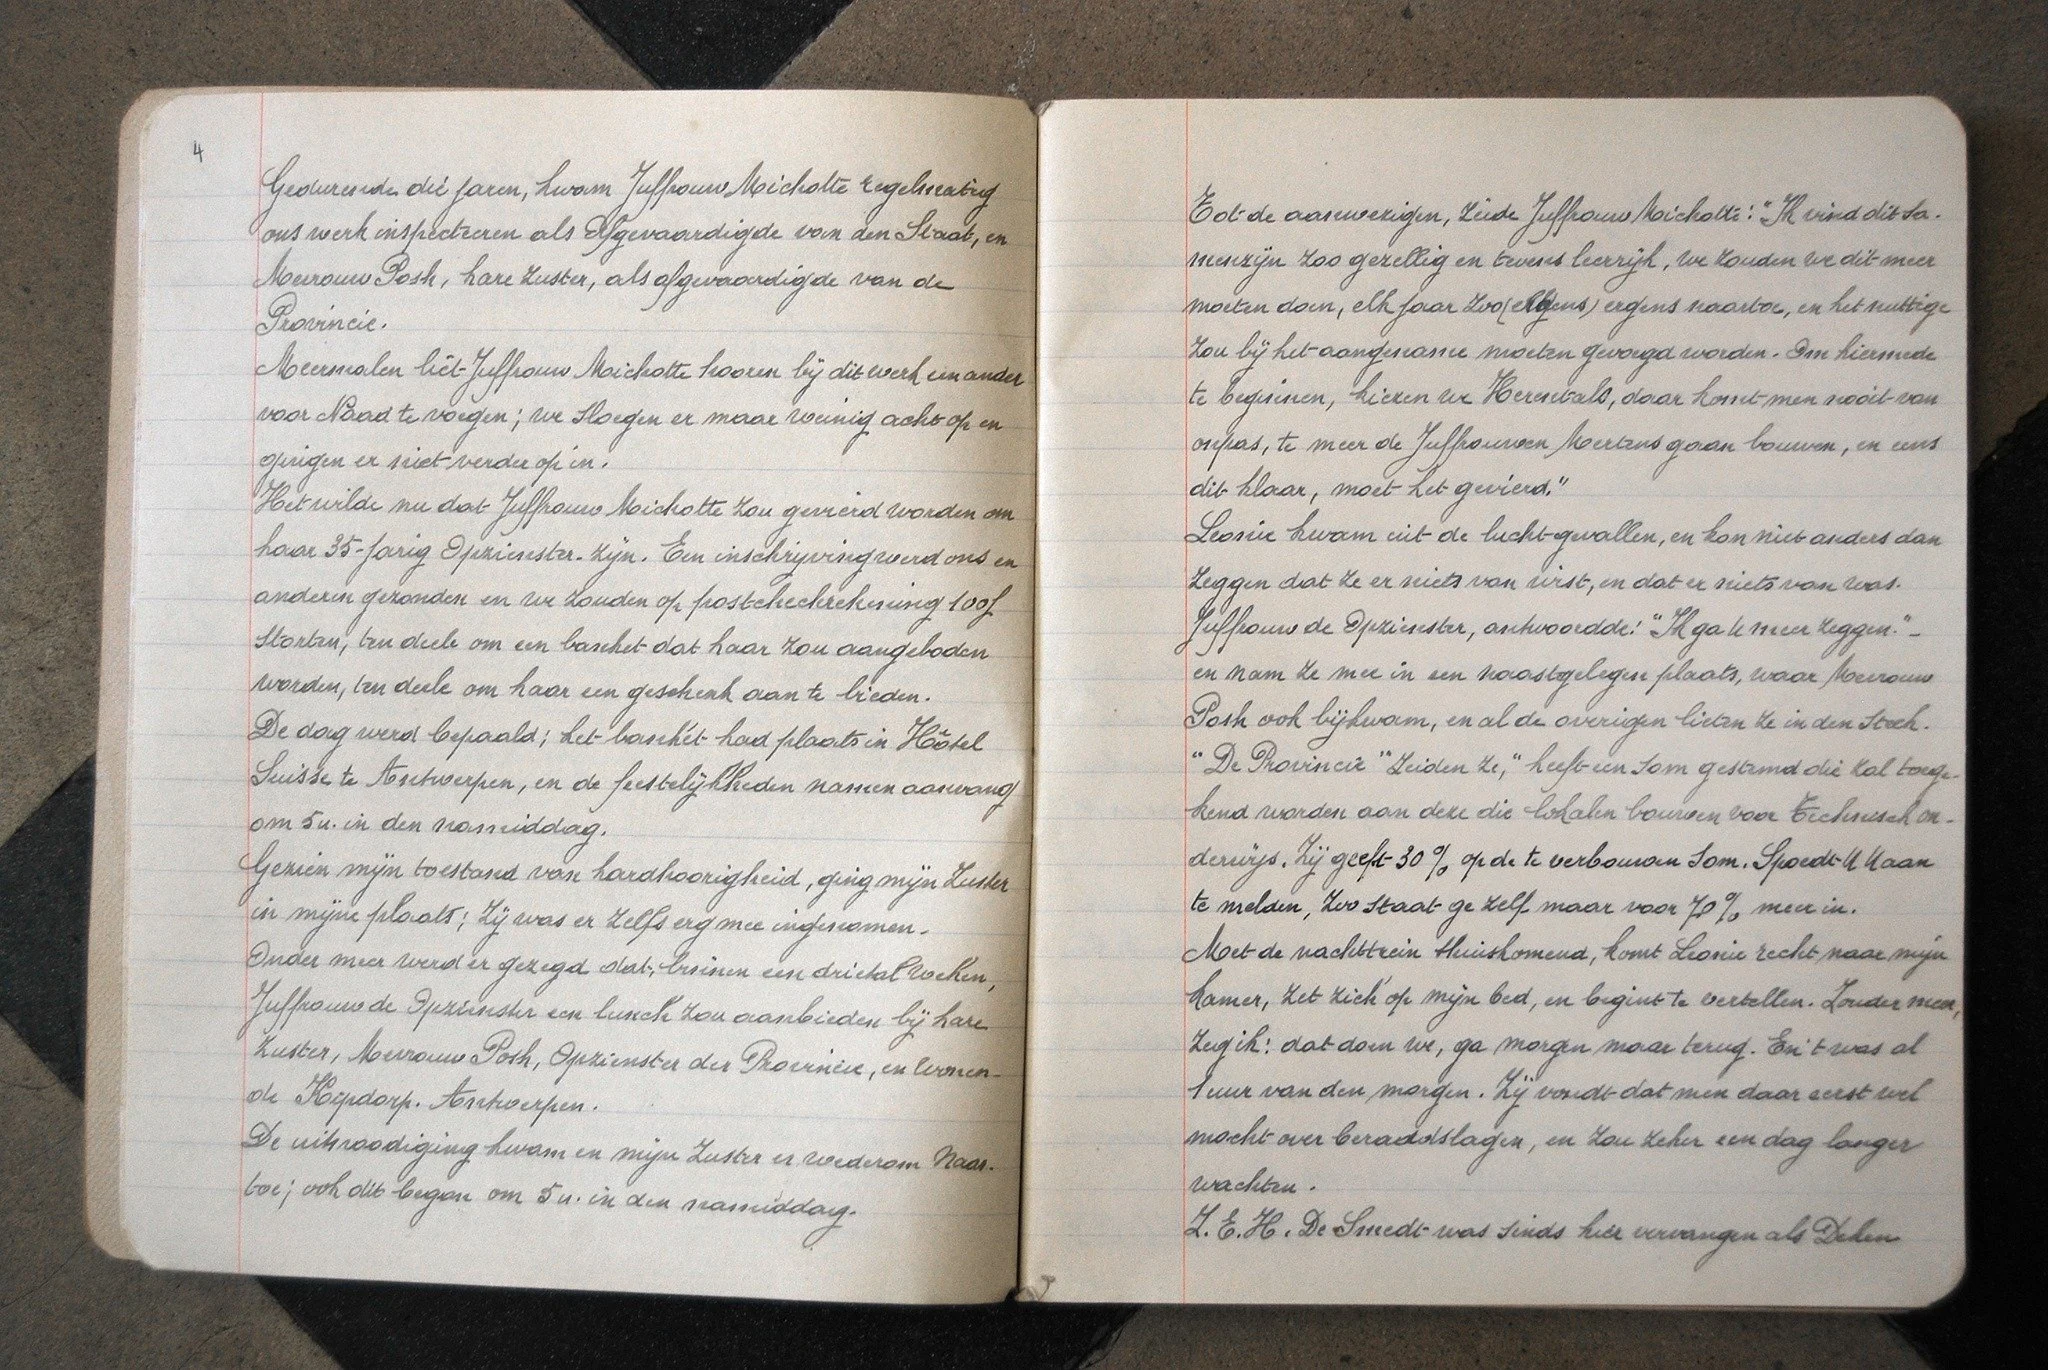 4
Gedurende die jaren, kwam Juffrouw Michotte regelmatig
ons werk inspecteeren als Afgevaardigde van den Staat, en
Mevrouw Posh, hare Zuster, als afgevaardigde van de
Provincie.
Meermalen liet Juffrouw Michotte hooren bij dit werk een ander
voor Naad te voegen; we sloegen er maar weinig acht op en
gingen er niet verder op in.
Het wilde nu dat Juffrouw Michotte zou gevierd worden om
haar 35-jarig Opzienster-zijn. Een inschrijving werd ons en
anderen gezonden en we zouden op postcheckrekening 100f
storten, ten deele om een banket dat haar zou aangeboden
worden, ten deele om haar een geschenk aan te bieden.
De dag werd bepaald; het banket had plaats in Hôtel
Suisse te Antwerpen, en de feestelijkheden namen aanvang
om 5 u. in den namiddag.
Gezien mijn toestand van hardhoorigheid, ging mijn Zuster
in mijne plaats; Zij was er zelfs erg mee ingenomen.
Onder meer werd er gezegd dat, binnen een drietal weken,
Juffrouw de Opzienster een lunch zou aanbieden bij hare
Zuster, Mevrouw Posh, Opzienster der Provincie, en wonen-
de Kipdorp. Antwerpen.
De uitnoodiging kwam en mijn Zuster er wederom naar-
toe; ook dit began om 5 u. in den namiddag.
Tot de aanwezigen, zeide Juffrouw Michotte: "Ik vind dit sa-
menzijn zoo gezellig en tevens leerrijk, we zouden we dit meer
moeten doen, elk jaar zoo (ergens) ergens naartoe, en het nuttige
zou bij het aangename moeten gevoegd worden. Om hiermede
te beginnen, kiezen we Herentals, daar komt men nooit van
onpas, te meer de Juffrouwen Mertens gaan bouwen, en eens
dit klaar, moet het gevierd."
Leonie kwam uit de lucht gevallen, en kon niet anders dan
zeggen dat ze er niets van wist, en dat er niets van was.
Juffrouw de Opzienster, antwoordde: "Ik ga U meer zeggen." -
en nam ze mee in een naastgelegen plaats, waar Mevrouw
Posh ook bijkwam, en al de overigen lieten ze in den steek.
"De Provincie" zeiden ze, "heeft een som gestemd die zal toege-
kend worden aan deze die lokalen bouwen voor Technisch on-
derwijs. Zij geeft 30% op de te verbouwen som. Spoedt U U aan
te melden, zoo staat ge zelf maar voor 70% meer in.
Met de nachttrein thuiskomend, komt Leonie recht naar mijn
kamer, zet zich op mijn bed, en begint te vertellen. Zonder meer,
zeg ik: dat doen we, ga morgen maar terug. En 't was al
1 uur van den morgen. Zij vondt dat men daar eerst wel
mocht over beraadslagen, en zou zeker een dag langer
wachten.
Z. E. H. De Smedt was sinds hier vervangen als Deken